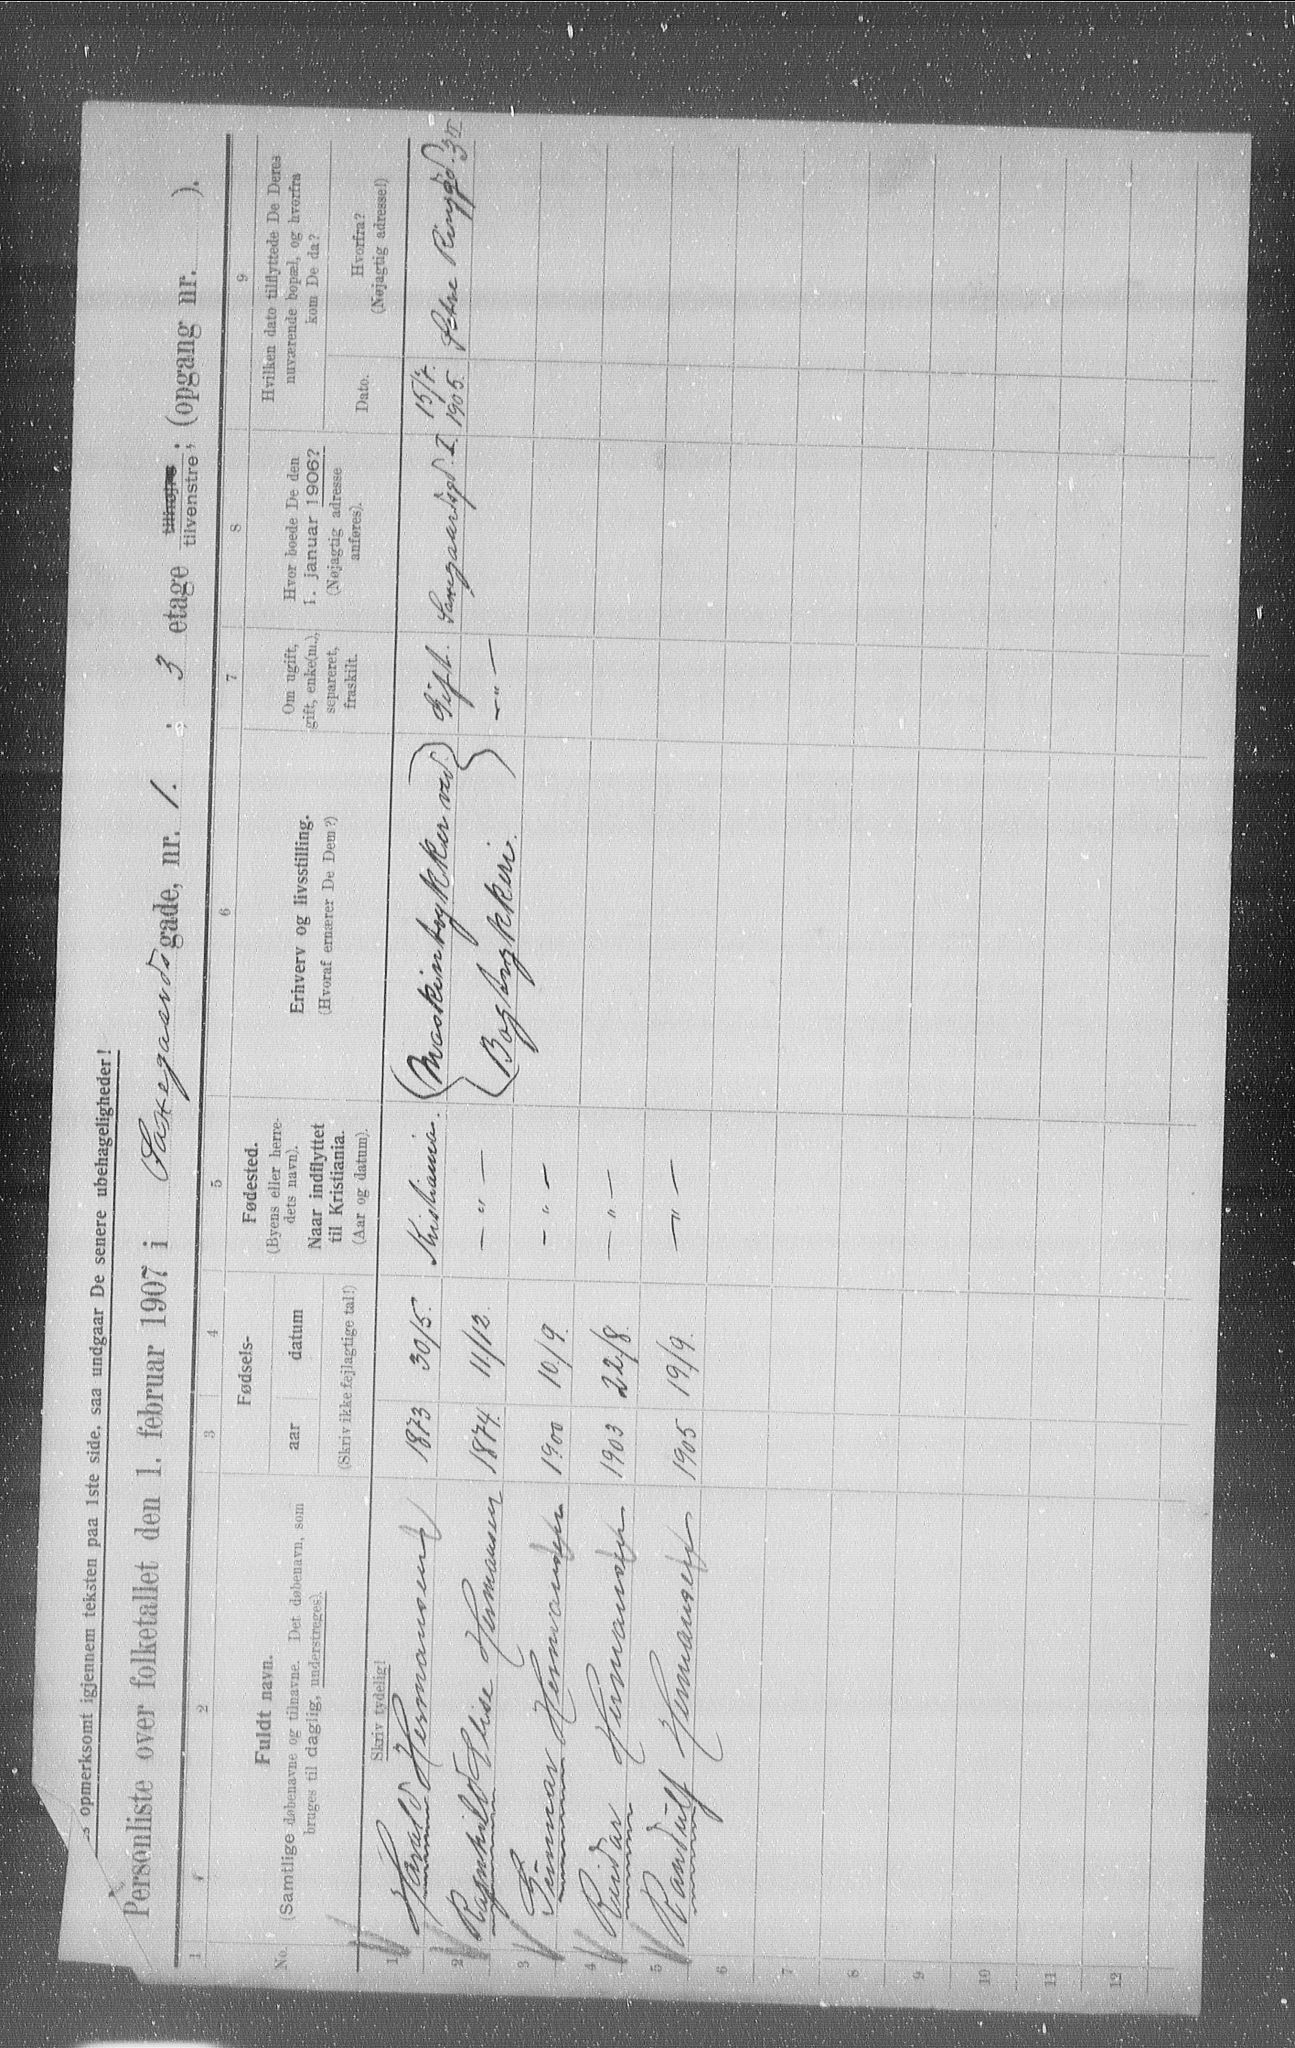 opmerksomt igjennem teksten paa 1ste side, saa undgaar De senere ubehageligheder!
Personliste over folketallet den 1. februar 1907 i Saxegaardsgade, nr. 1. ; 3 etage tilhøjre tilvenstre; (opgang nr. ).
1 2 3 4 5 6 7 8 9
No. Fuldt navn. (Samtlige døbenavne og tilnavne. Det døbenavn, som bruges til daglig, understreges). Skriv tydelig!
Fødsels- aar datum (Skriv ikke fejlagtige tal!)
Fødested. (Byens eller herredets navn). Naar indflyttet til Kristiania. (Aar og datum).
Erhverv og livsstilling. (Hvoraf ernærer De Dem?)
Om ugift, gift, enke(m.), separeret, fraskilt.
Hvor boede De den 1. januar 1906? (Nøjagtig adresse anføres).
Hvilken dato tilflyttede De Deres nuværende bopæl, og hvorfra kom De da? Dato. Hvorfra? (Nøjagtig adresse!)
1 Harald Hermansen 1873 30/5. Kristiania. Maskintrykker ved Gift. 15/7. 1905.
2 Ragnhild Elise Hermansen 1874. 11/12. — " — Bogtrykkeri. — " —
3 Hermansen 1900 10/9. — " —
4 Reidar Hermansen 1903 22/8. — " —
5 Randulf Hermansen 1905 19/9. — " —
6
7
8
9
10
11
12